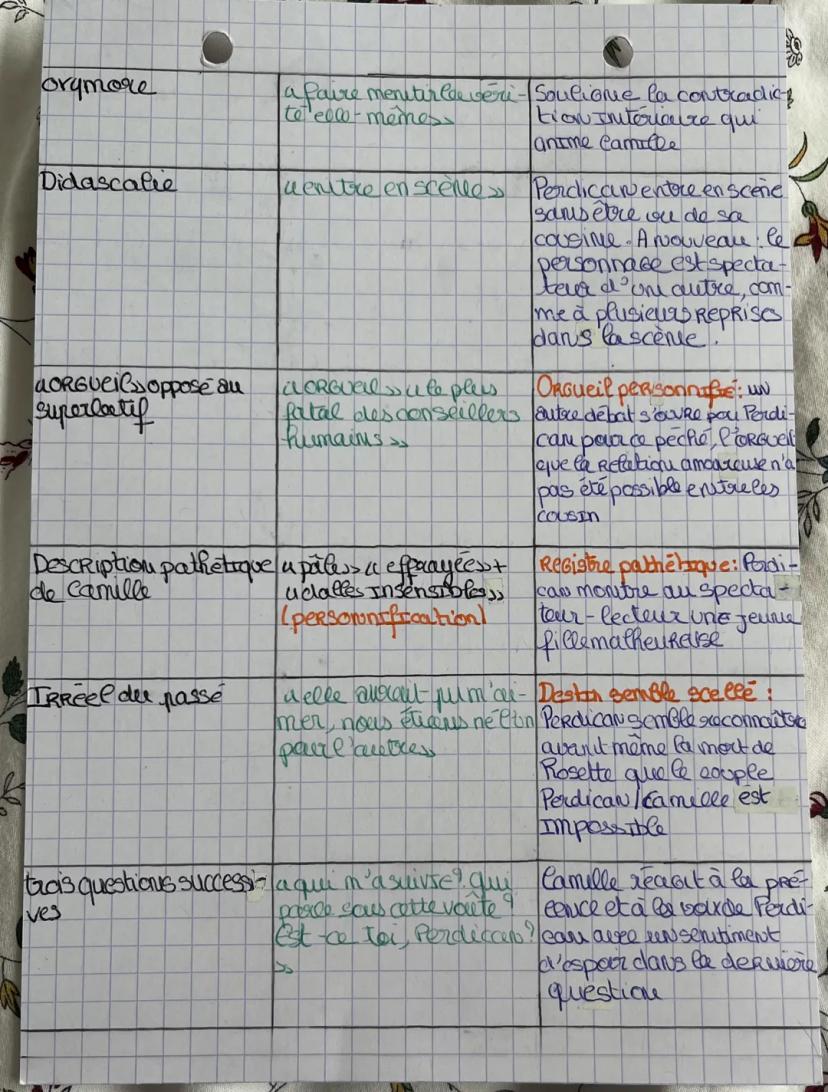 oxymore
« faire mentir la véri-
té elle-même »
Souligne la contradic-
tion intérieure qui
anime Camille
Didascalie
« entre en scène »
Perdican entre en scène
sans être vu de sa
cousine. A nouveau : le
personnage est specta-
teur d'un autre, com-
me à plusieurs REPRISES
dans la scène.
« ORGUEIL » opposé au
superlatif
« ORGUEIL » « le plus
fatal des conseillers
humains »
Orgueil personnifié : un
autre débat s'ouvre par Perdi-
can pour ce péché, l'orgueil
que la relation amoureuse n'a
pas été possible entre les
cousin
Description pathétique
de Camille
« pâle » « effrayée » +
« dalles insensibles »
(personnification)
Registre pathétique : Perdi-
can montre au specta-
teur-lecteur une jeune
fille malheureuse
Irréel du passé
« elle aurait pu m'ai-
mer, nous étions né l'un
pour l'autre »
Destin semble scellé :
Perdican semble reconnaître
avant même la mort de
Rosette que le couple
Perdican/Camille est
impossible
trois questions successi-
ves
« qui m'a suivie ? qui
parle sous cette voûte ?
Est-ce toi, Perdican ?
»
Camille réagit à la pré-
cence et à la voix de Perdi-
can avec un sentiment
d'espoir dans la dernière
question